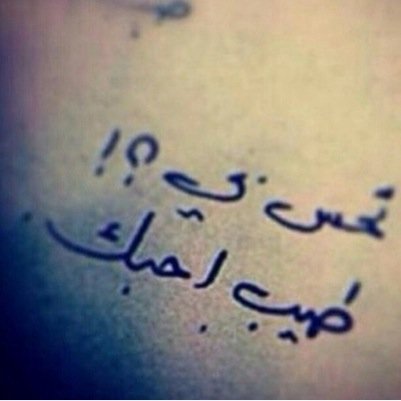 تحس بي ؟!
طيب احبك .